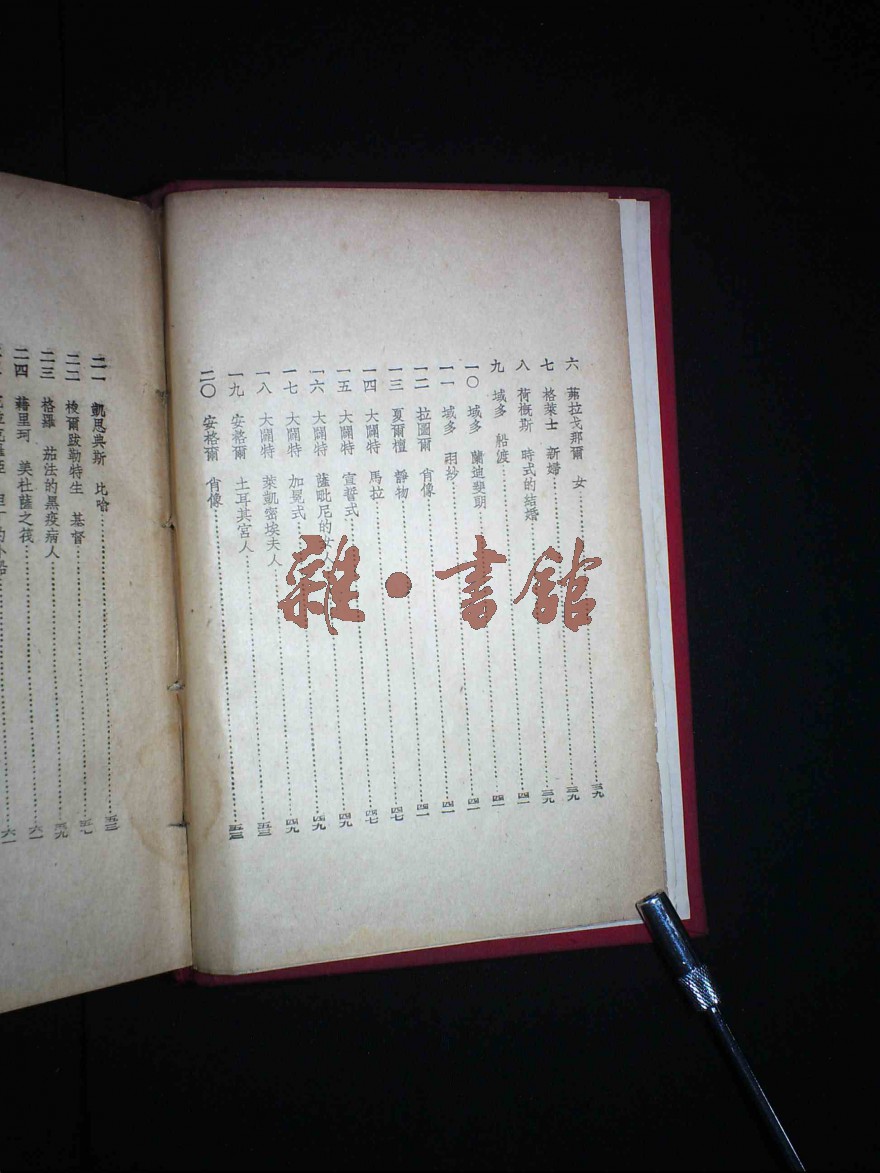 六 茀拉戈那爾 女 三九
七 格萊士 新婦 三九
八 荷槪斯 時式的結婚 三九
九 域多 船渡 四一
一〇 域多 蘭迪斐朝 四一
一一 域多 雨紗 四一
一二 拉圖爾 肖像 四一
一三 夏爾檀 靜物 四一
一四 大闘特 馬拉 四七
一五 大闘特 宣誓式 四七
一六 大闘特 薩毗尼的女人 四九
一七 大闘特 加冕式 四九
一八 大闘特 萊凱密埃夫人 四九
一九 安格爾 土耳其宮人 五三
二〇 安格爾 肖像 五三
二一 凱思典斯 比哈 五三
二二 梭爾跋勒特生 基督 五七
二三 格羅 茄法的黑疫病人 五九
二四 藉里珂 美杜薩之筏 六一
六一
雜·書館